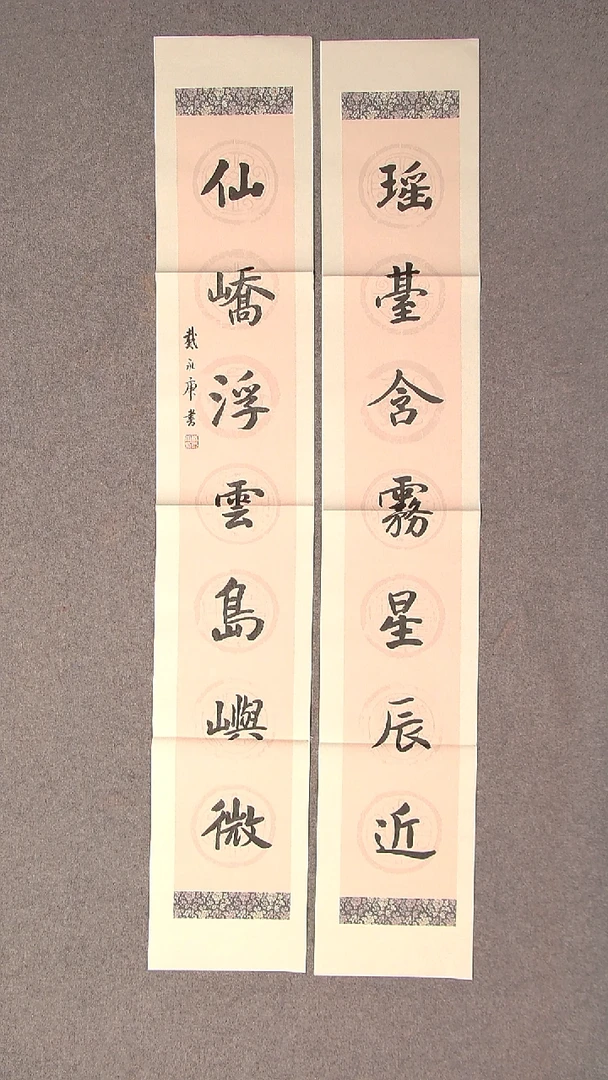 瑶臺含霧星辰近
仙嶠浮雲島嶼微
戴永康書